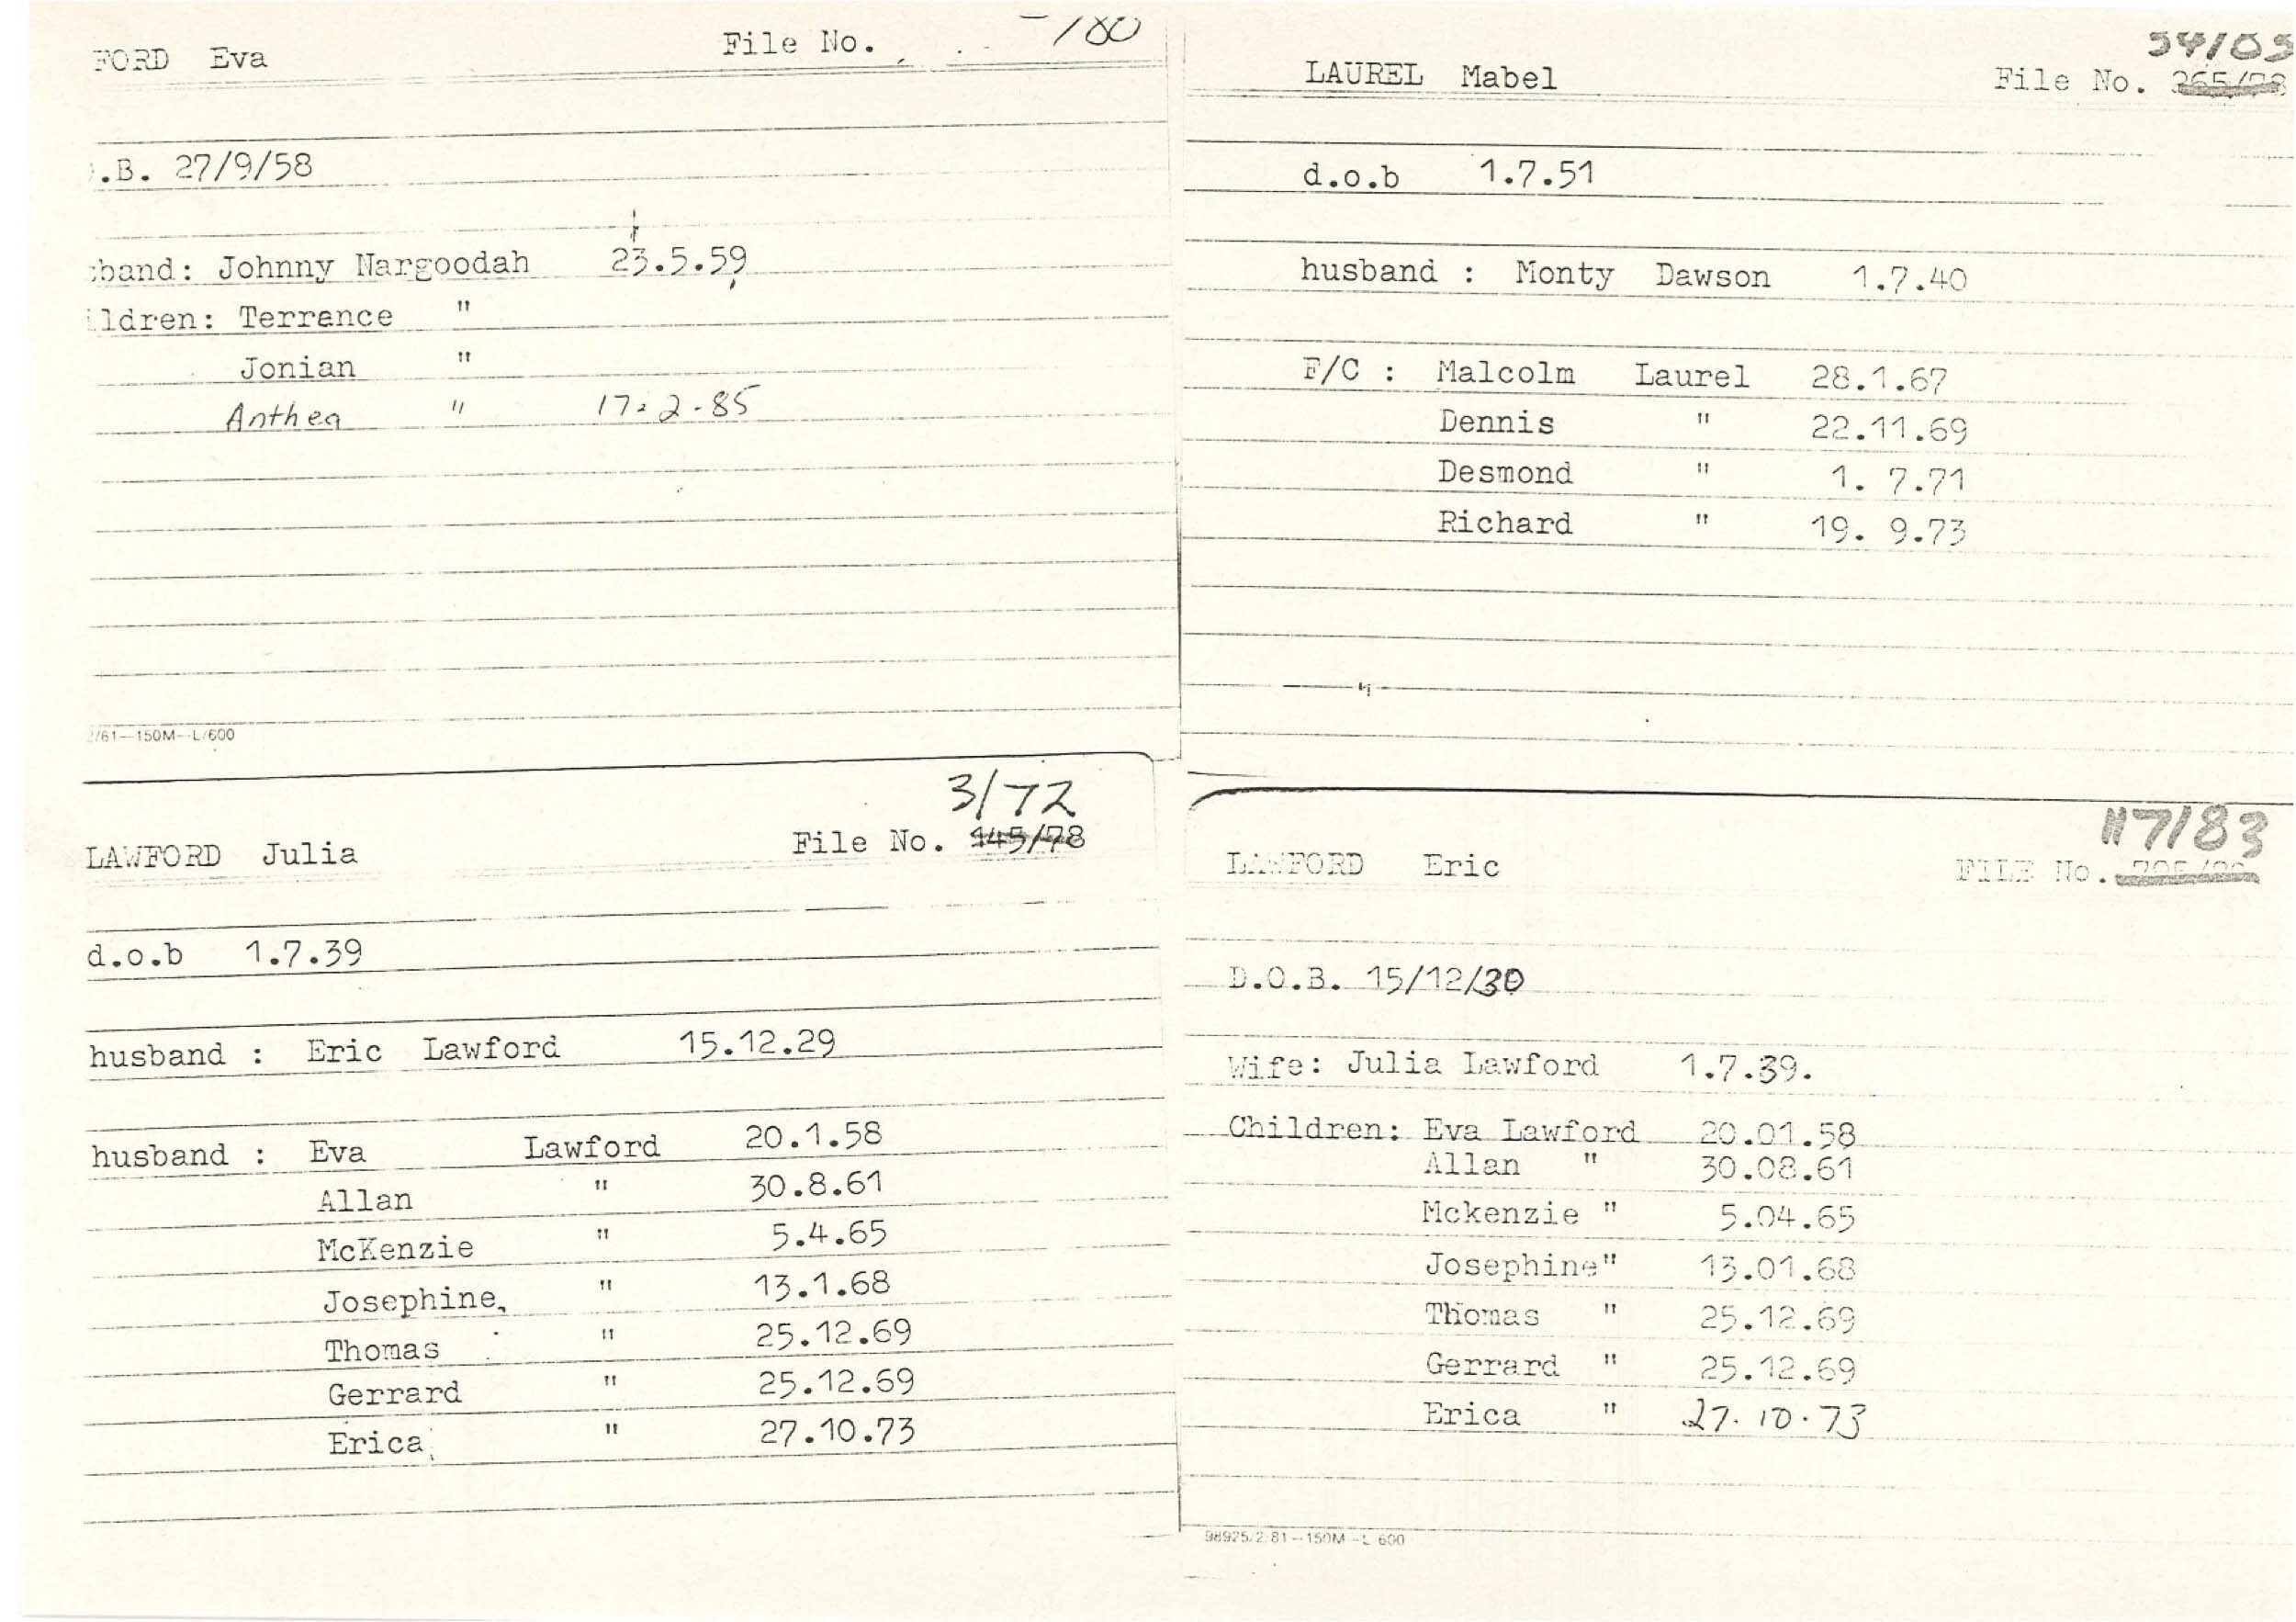 FORD Eva File No. /80
.B. 27/9/58
band: Johnny Nargoodah 23.5.59
ldren: Terrance "
Jonian "
Anthea " 17.2.85
/61—150M—L/600
54/83
LAUREL Mabel File No. 365/78
d.o.b 1.7.51
husband : Monty Dawson 1.7.40
F/C : Malcolm Laurel 28.1.67
Dennis " 22.11.69
Desmond " 1. 7.71
Richard " 19. 9.73
3/72
LAWFORD Julia File No. 145/78
d.o.b 1.7.39
husband : Eric Lawford 15.12.29
husband : Eva Lawford 20.1.58
Allan " 30.8.61
McKenzie " 5.4.65
Josephine, " 13.1.68
Thomas " 25.12.69
Gerrard " 25.12.69
Erica " 27.10.73
117/83
LAWFORD Eric FILE No.
D.O.B. 15/12/30
Wife: Julia Lawford 1.7.39.
Children: Eva Lawford 20.01.58
Allan " 30.08.61
Mckenzie " 5.04.65
Josephine" 13.01.68
Thomas " 25.12.69
Gerrard " 25.12.69
Erica " 27.10.73
98925/2/81—150M—L/600